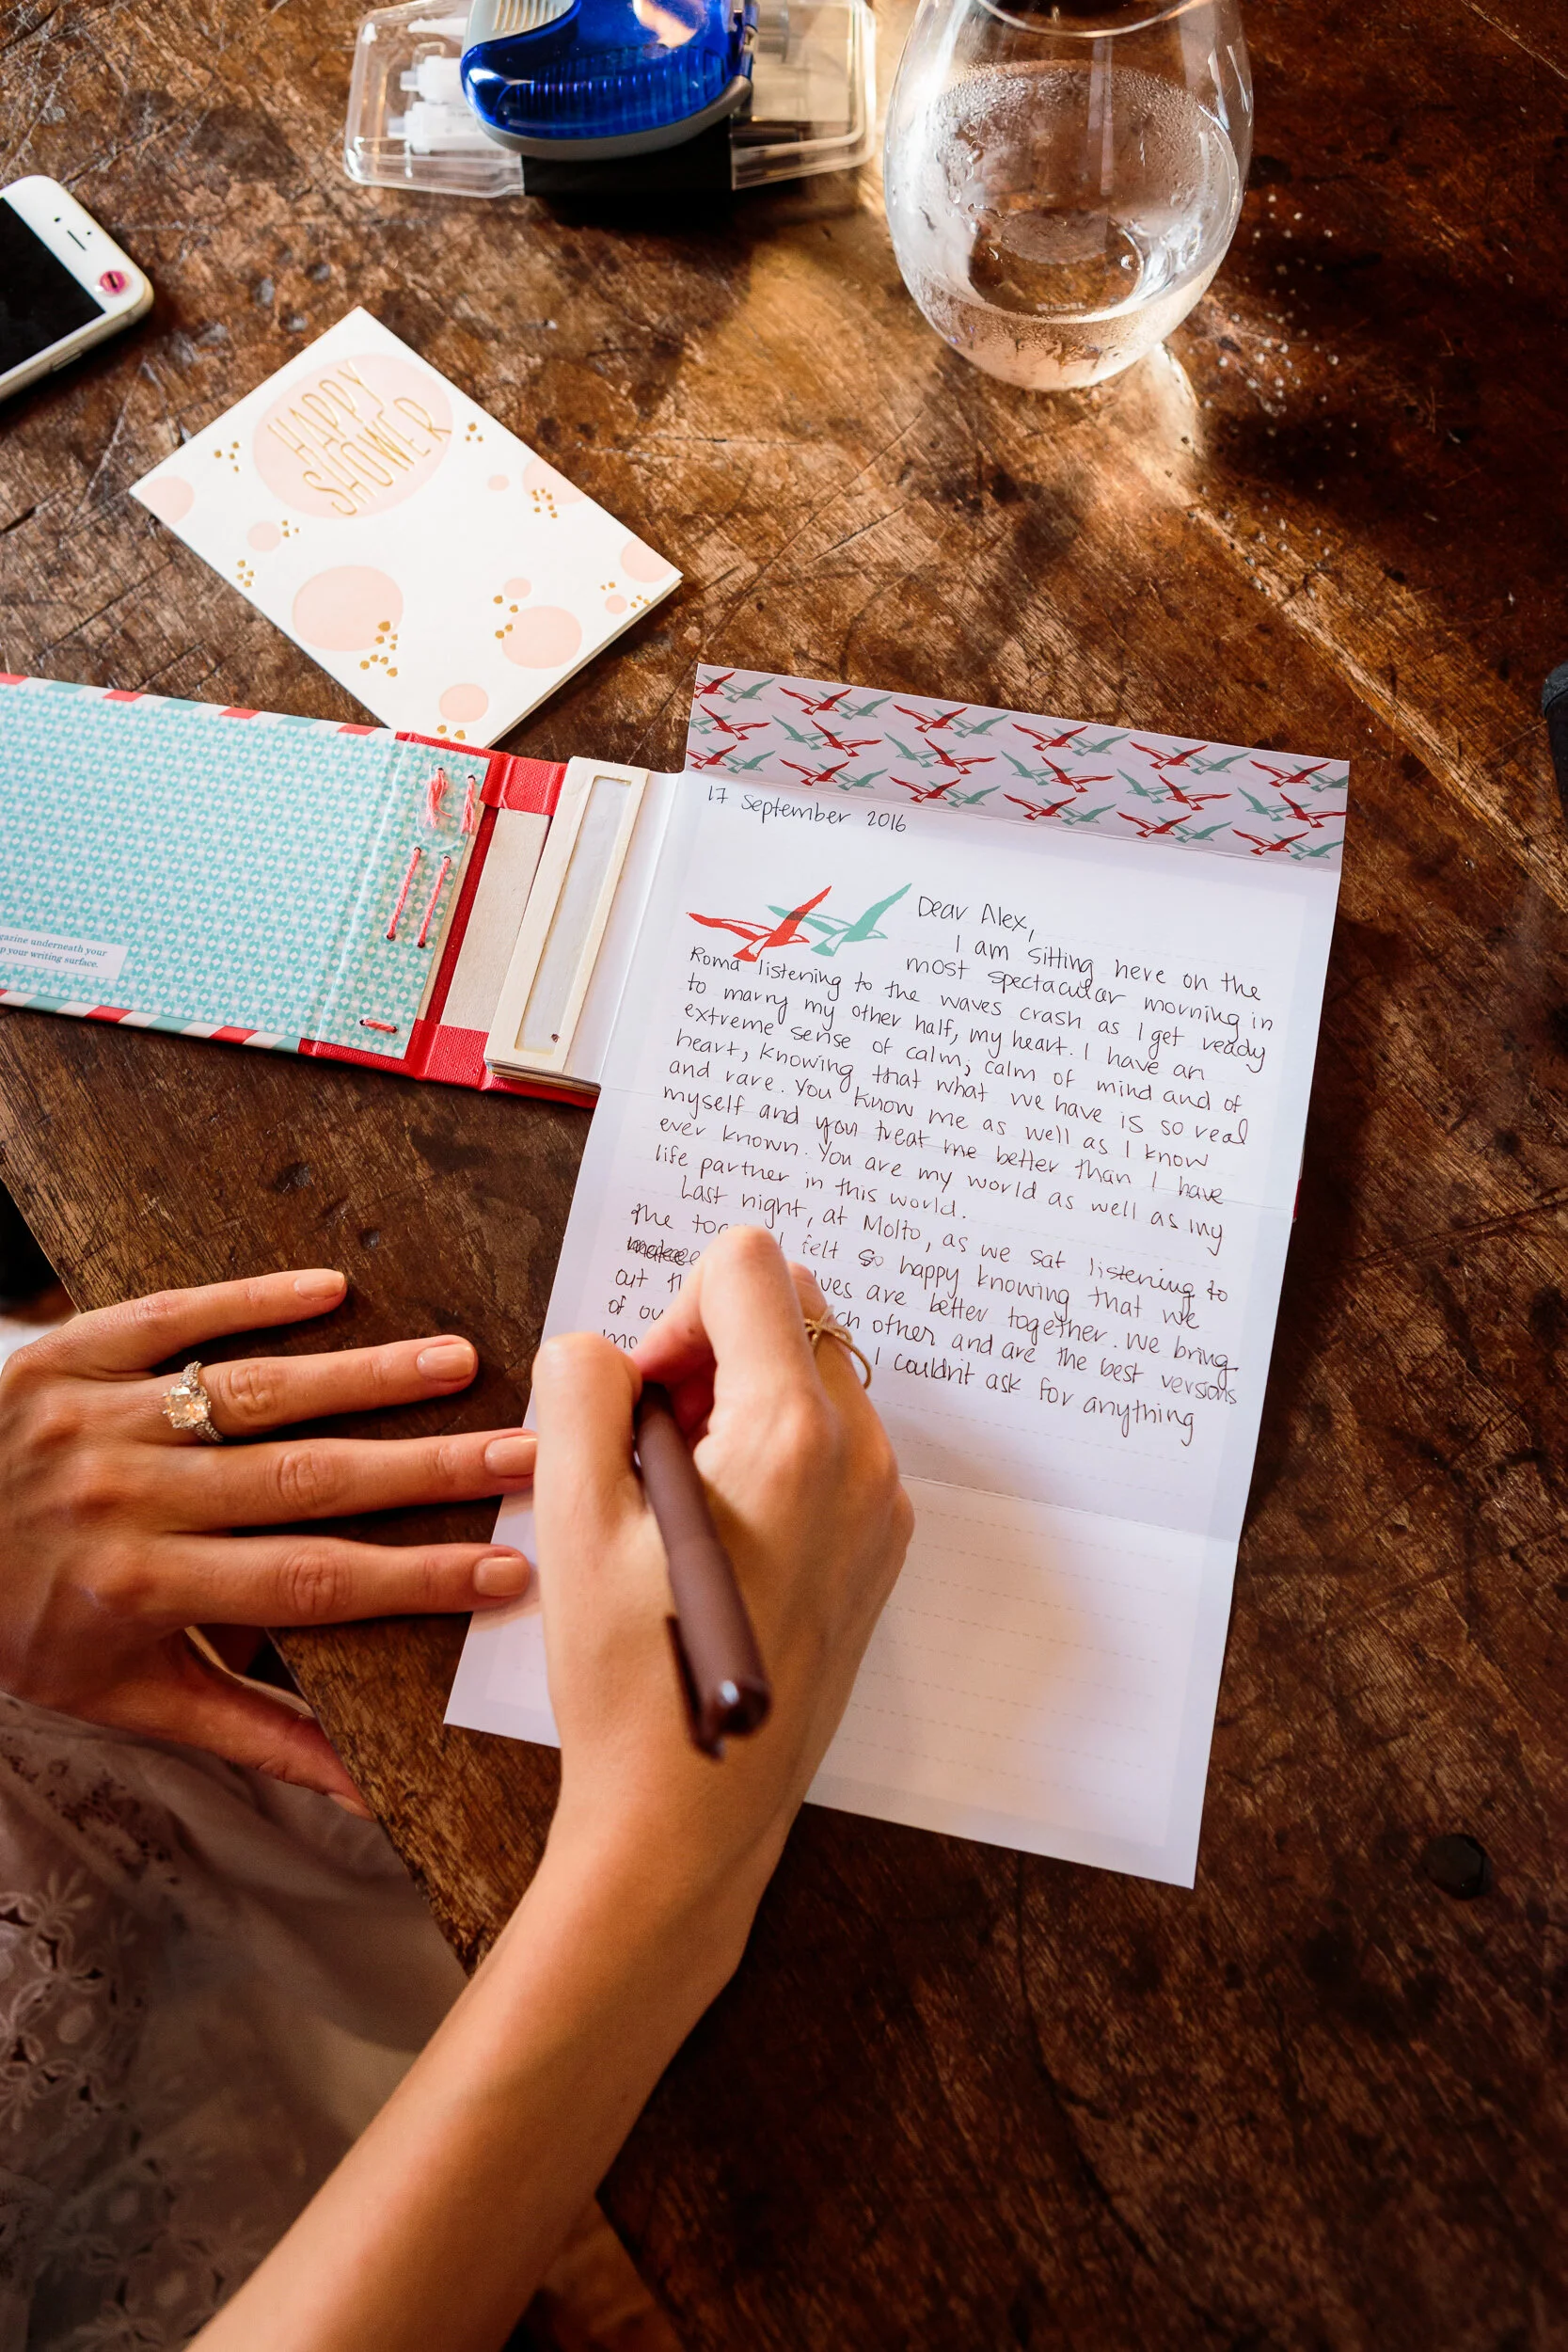 HAPPY
SHOWER
gazine underneath your
p your writing surface.
17 September 2016
Dear Alex,
I am sitting here on the
most spectacular morning in
Roma listening to the waves crash as I get ready
to marry my other half, my heart. I have an
extreme sense of calm; calm of mind and of
heart, knowing that what we have is so real
and rare. You know me as well as I know
myself and you treat me better than I have
ever known. You are my world as well as my
life partner in this world.
Last night, at Molto, as we sat listening to
the felt so happy knowing that we
lves are better together. We bring
out ch other and are the best versions
of ou I couldn't ask for anything